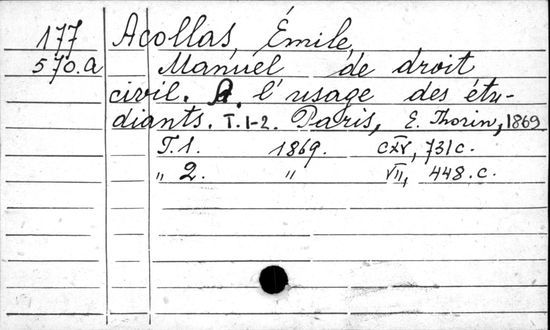 177 Acollas, Émile,
570.a Manuel de droit
civil. A. l'usage des étu-
diants. T. 1-2. Paris, E. Thorin, 1869
T. 1. 1869. CXV, 731 c.
„ 2. „ VII, 448. c.